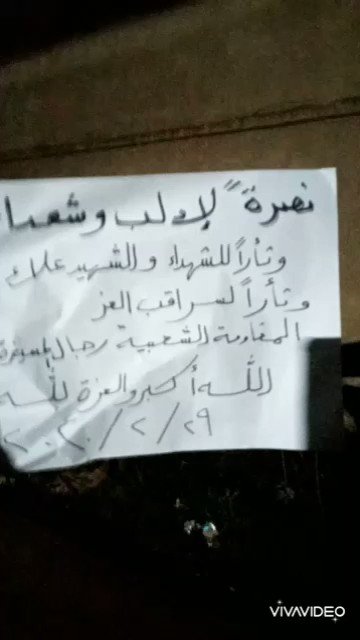 نصرةً لإدلب وشعبها
وثأراً للشهداء والشهيد علاء
وثأراً لسراقب العز
المقاومة الشعبية رجال
الله أكبر والعزة لله
٢٠٢٠/٢/٢٩
VIVAVIDEO